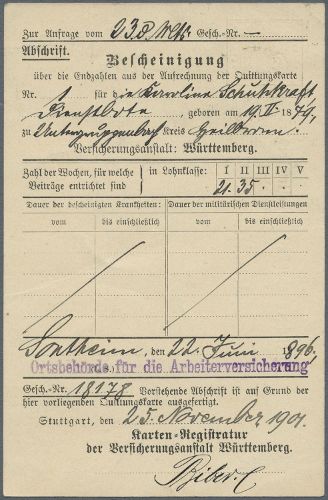 Zur Anfrage vom 238 Wttg Gesch.-Nr. —
Abschrift.
Bescheinigung
über die Endzahlen aus der Aufrechnung der Quittungskarte
Nr. 1 für die Karoline Schuhkraft
Dienstbote, geboren am 19. IV 1874,
zu Untergruppenbach Kreis Heilbronn.
Versicherungsanstalt: Württemberg.
Zahl der Wochen, für welche Beiträge entrichtet sind in Lohnklasse: I II III IV V
21. 35. . . .
Dauer der bescheinigten Krankheiten: Dauer der militärischen Dienstleistungen
vom bis einschließlich vom bis einschließlich
Sontheim, den 22. Juni 1896.
Ortsbehörde für die Arbeiterversicherung
Gesch.-Nr. 18178 Vorstehende Abschrift ist auf Grund der
hier vorliegenden Quittungskarte ausgefertigt.
Stuttgart, den 25. November 1901.
Karten-Registratur
der Versicherungsanstalt Württemberg.